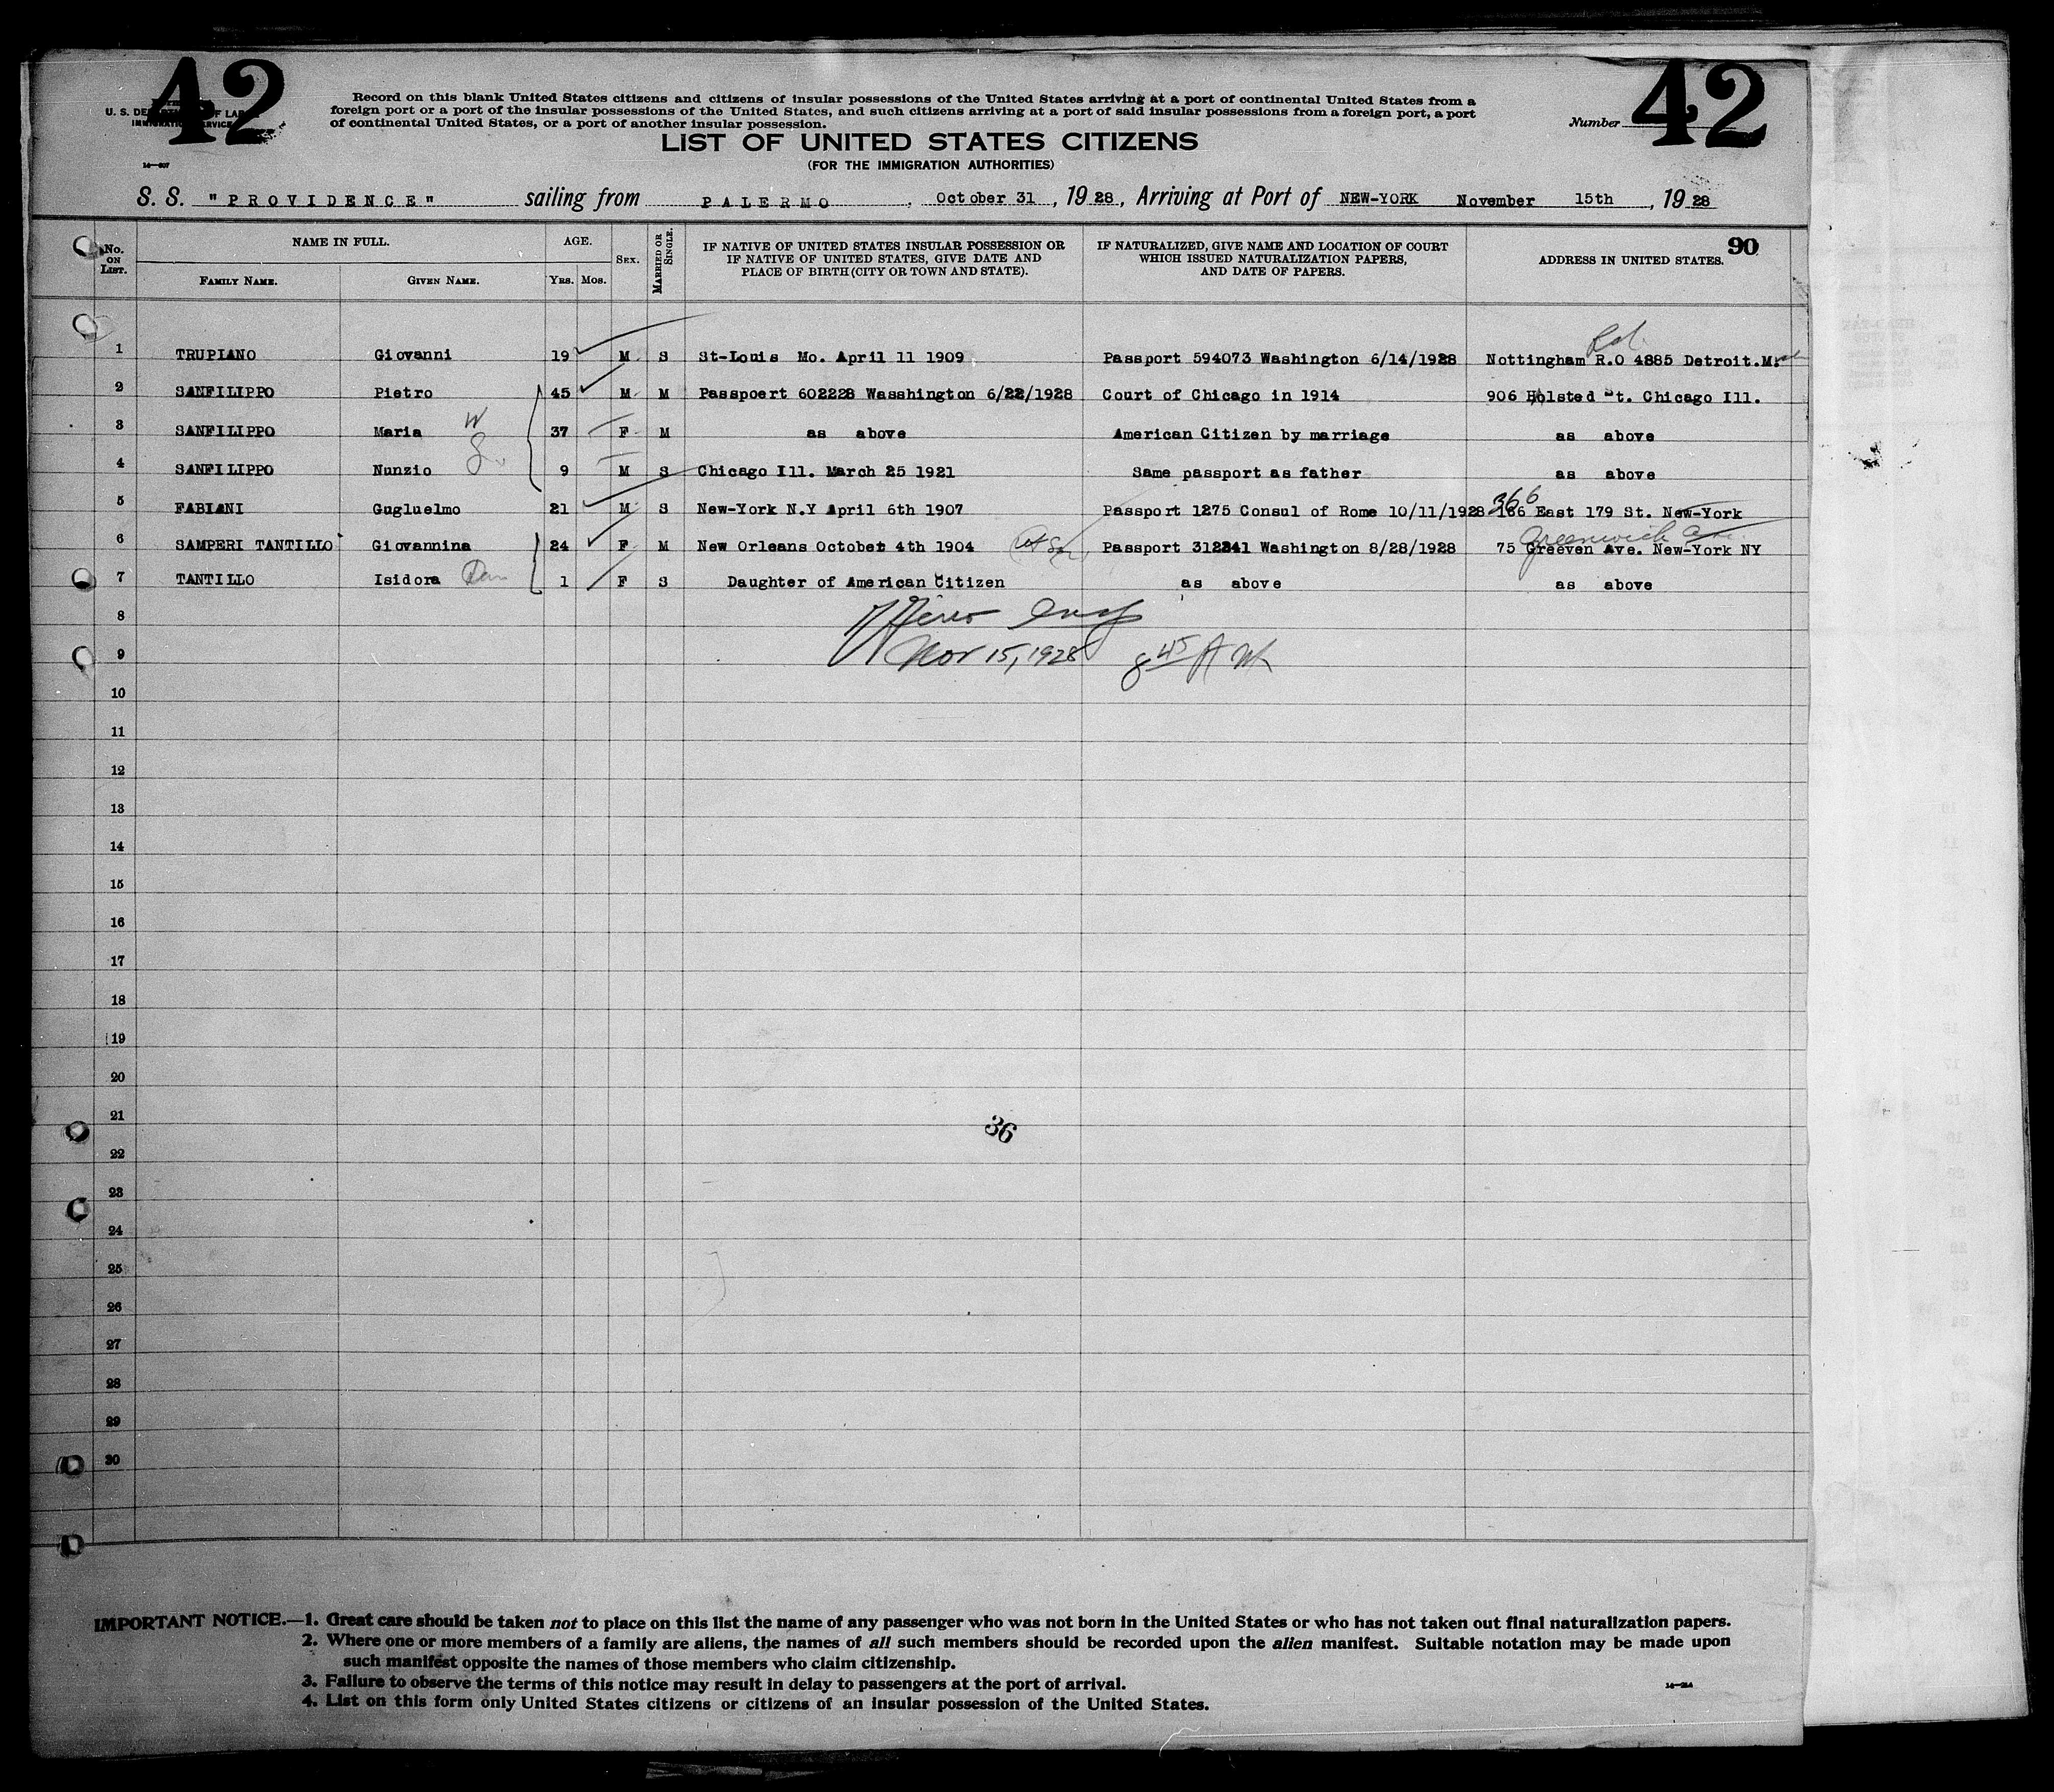 42
42
U. S. DE
Record on this blank United States citizens and citizens of insular possessions of the United States arriving at a port of continental United States from a
foreign port or a port of the insular possessions of the United States, and such citizens arriving at a port of said insular possessions from a foreign port, a port
of continental United States, or a port of another insular possession.
Number
LIST OF UNITED STATES CITIZENS
(FOR THE IMMIGRATION AUTHORITIES)
S. S. "PROVIDENCE" sailing from PALERMO, October 31, 1928, Arriving at Port of NEW-YORK November 15th, 1928
No. ON LIST. NAME IN FULL. AGE. SEX. MARRIED OR SINGLE. IF NATIVE OF UNITED STATES INSULAR POSSESSION OR IF NATIVE OF UNITED STATES, GIVE DATE AND PLACE OF BIRTH (CITY OR TOWN AND STATE). IF NATURALIZED, GIVE NAME AND LOCATION OF COURT WHICH ISSUED NATURALIZATION PAPERS, AND DATE OF PAPERS. ADDRESS IN UNITED STATES. 90
FAMILY NAME. GIVEN NAME. YRS. MOS.
1 TRUPIANO Giovanni 19 M S St-Louis Mo. April 11 1909 Passport 594073 Washington 6/14/1928 Nottingham R.O 4885 Detroit.M
2 SANFILIPPO Pietro 45 M M Passpoert 602228 Wasshington 6/22/1928 Court of Chicago in 1914 906 Holsted t. Chicago Ill.
3 SANFILIPPO Maria W 37 F M as above American Citizen by marriage as above
4 SANFILIPPO Nunzio S 9 M S Chicago Ill. March 25 1921 Same passport as father as above
5 FABIANI Gugluelmo 21 M S New-York N.Y April 6th 1907 Passport 1275 Consul of Rome 10/11/1928 366 East 179 St. New-York
Greenwich
6 SAMPERI TANTILLO Giovannina 24 F M New Orleans October 4th 1904 Passport 312241 Washington 8/28/1928 75 Greeven Ave. New-York NY
7 TANTILLO Isidora 1 F S Daughter of American Citizen as above as above
8
9 Nov 15, 1928 8 45 A M
10
11
12
13
14
15
16
17
18
19
20
21
36
22
23
24
25
26
27
28
29
30
IMPORTANT NOTICE.—1. Great care should be taken not to place on this list the name of any passenger who was not born in the United States or who has not taken out final naturalization papers.
2. Where one or more members of a family are aliens, the names of all such members should be recorded upon the alien manifest. Suitable notation may be made upon
such manifest opposite the names of those members who claim citizenship.
3. Failure to observe the terms of this notice may result in delay to passengers at the port of arrival.
4. List on this form only United States citizens or citizens of an insular possession of the United States.